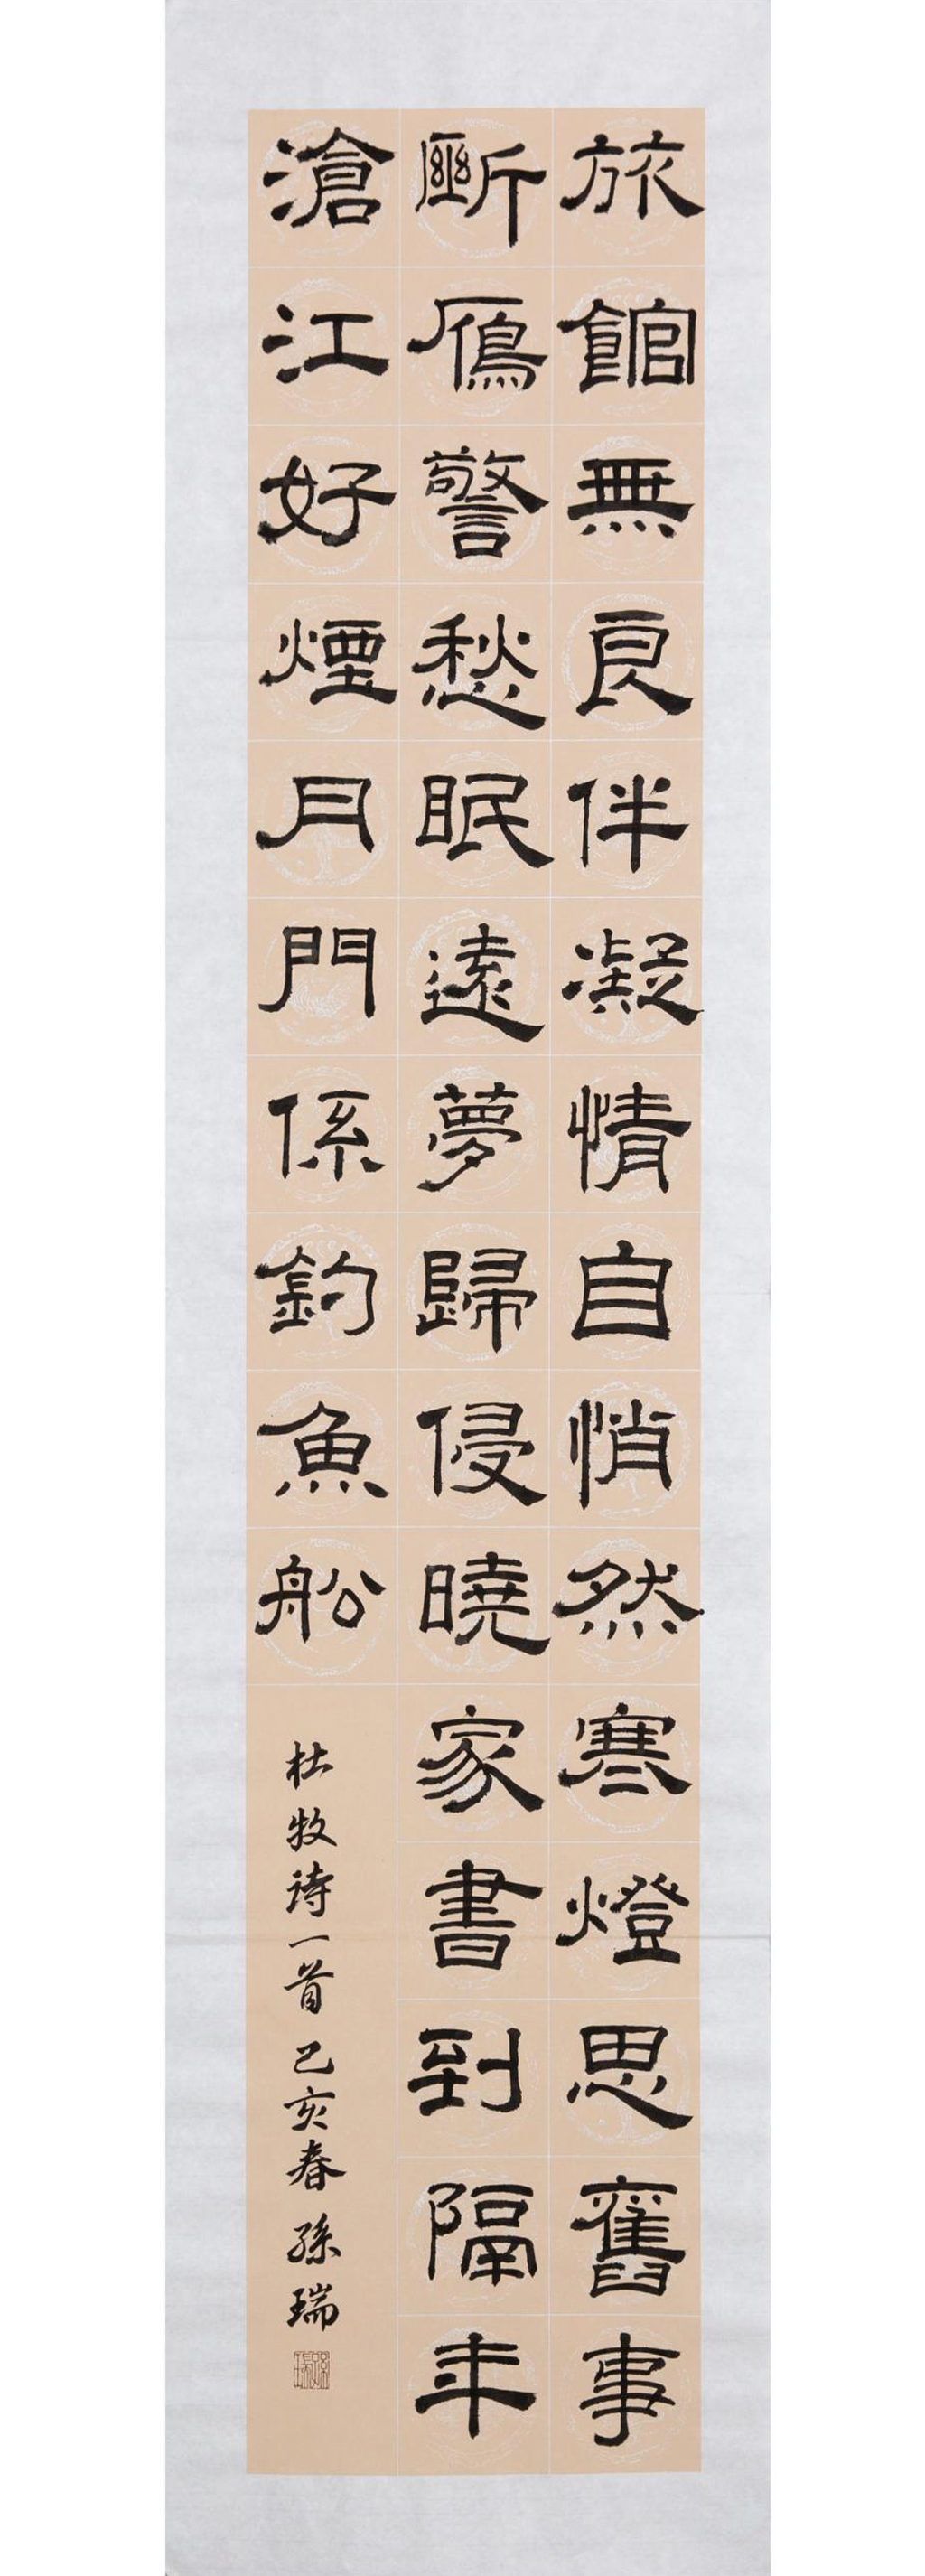 旅館無良伴凝情自悄然寒燈思舊事
斷鴈警愁眠遠夢歸侵曉家書到隔年
滄江好煙月門係釣魚船
杜牧诗一首 己亥春 孫瑞
孫瑞